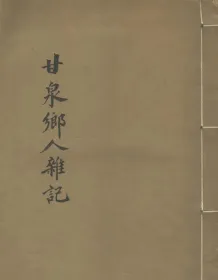 甘泉鄉人雜記